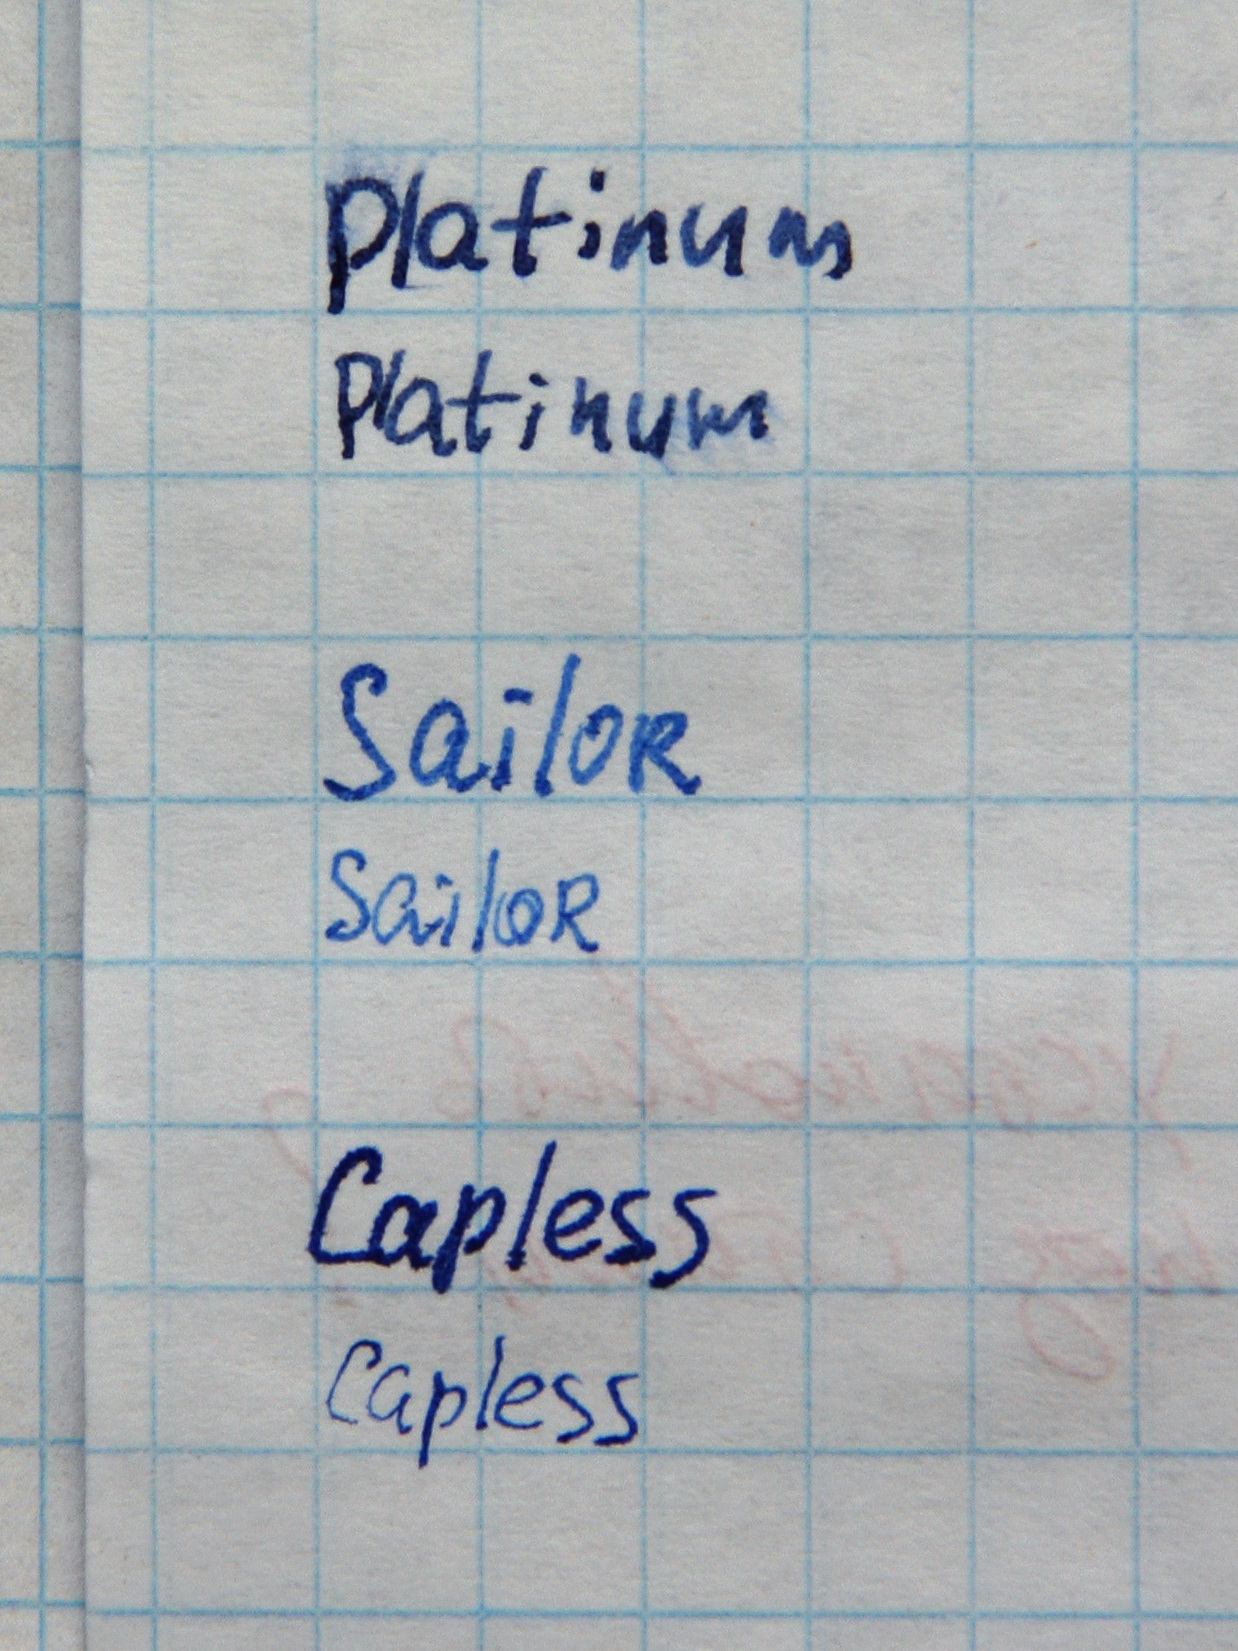 Platinum
Platinum
SailoR
SailoR
Capless
Capless